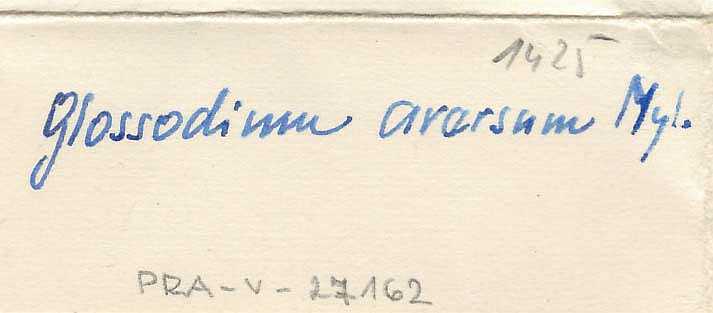 1425
Glossodium aversum Nyl.
PRA-V-27162